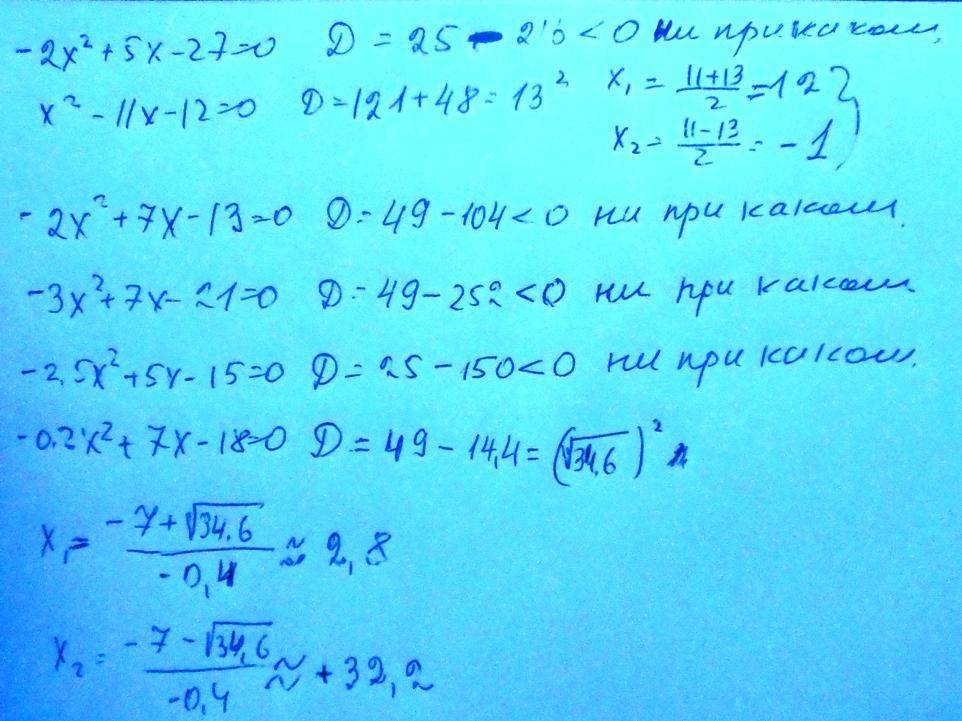 -2x²+5x-27=0 D = 25 - 216 < 0 ни при каком,
x² -11x-12=0 D=121+48=13² x₁ = (11+13)/2 = 12
x₂ = (11-13)/2 = -1
-2x²+7x-13=0 D=49-104<0 ни при каком.
-3x²+7x-21=0 D=49-252<0 ни при каком
-2,5x²+5x-15=0 D=25-150<0 ни при каком.
-0.2x²+7x-18=0 D=49-14,4=(√34,6)²
x₁= (-7+√34.6)/(-0,4) ≈ 2,8
x₂= (-7-√34,6)/(-0,4) ≈ +32,2